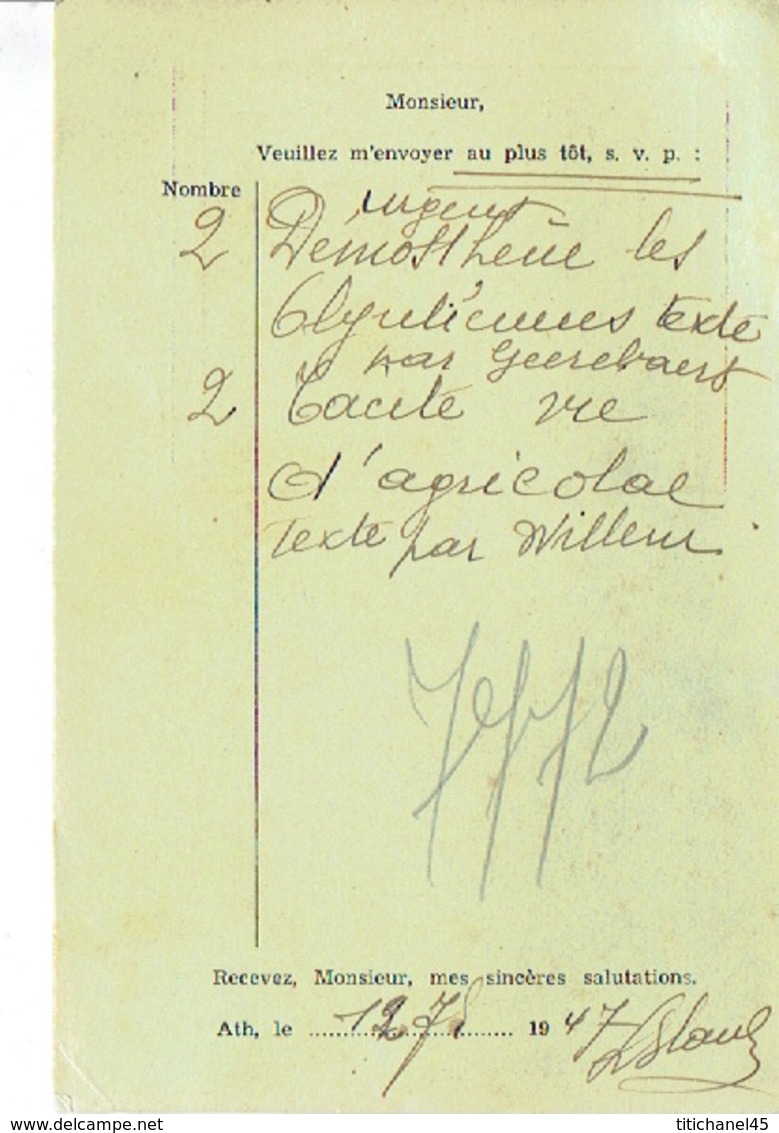 Monsieur,
Veuillez m'envoyer au plus tôt, s. v. p. :
Nombre
urgent
2 Démosthène les
Olynthiennes texte
par Geerebaert
2 Tacite vie
d'agricolae
Texte par Willem
Recevez, Monsieur, mes sincères salutations.
Ath, le 19 47
titichanel45